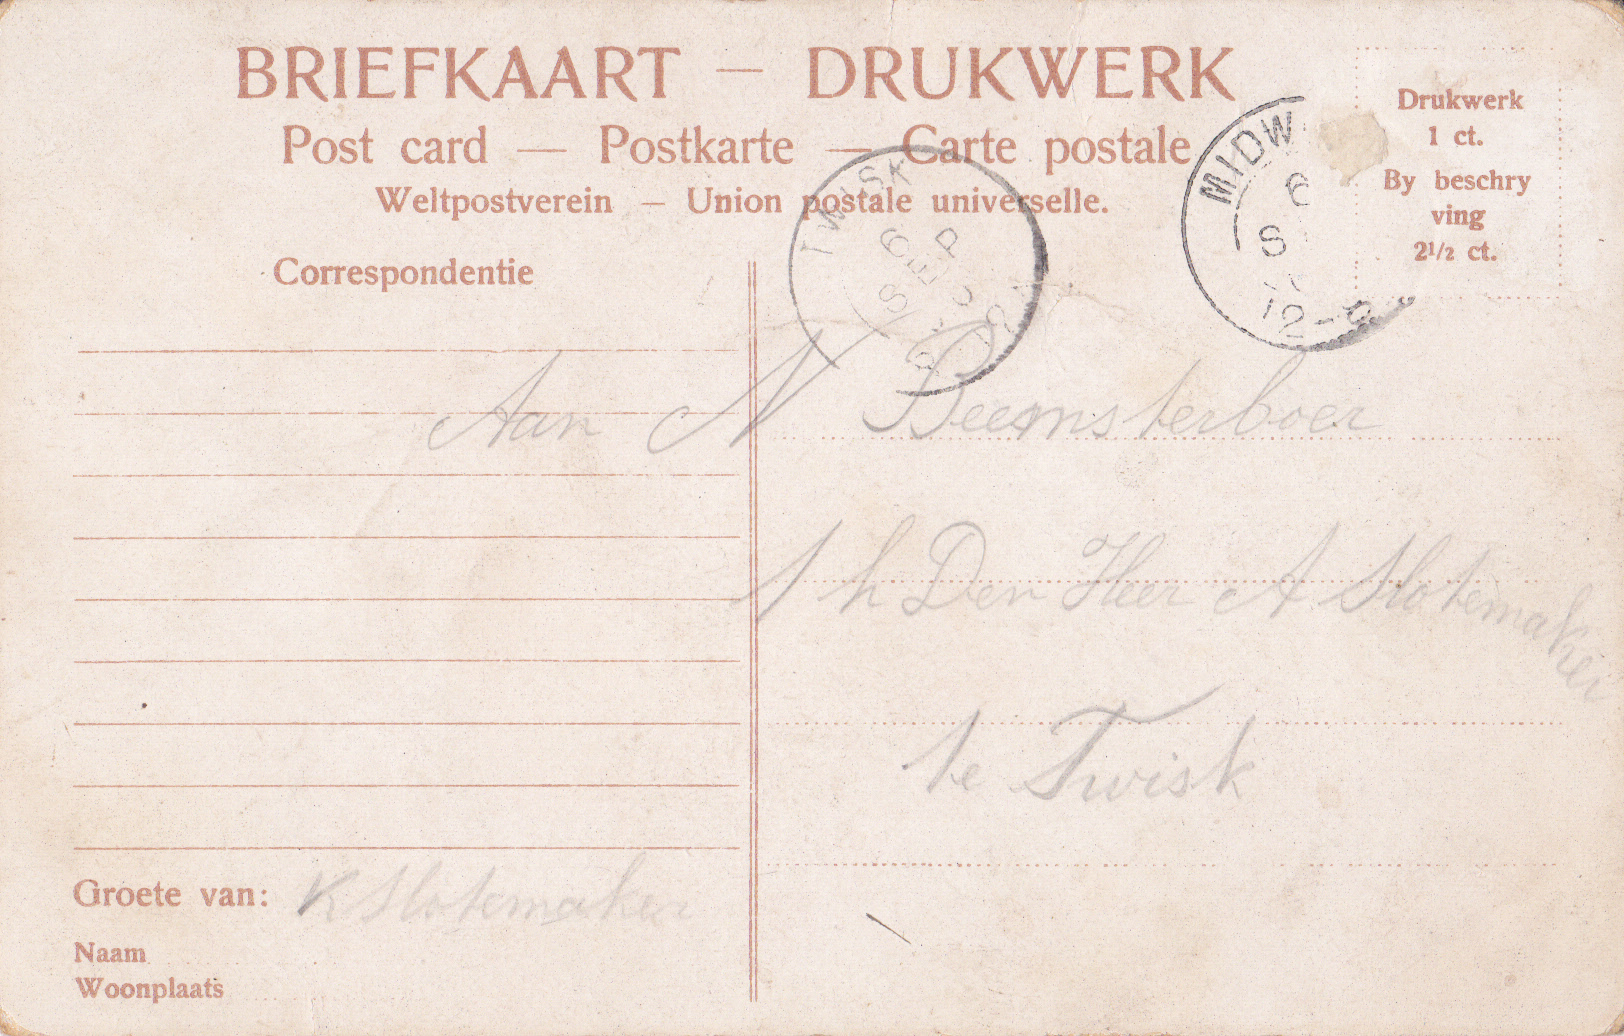 BRIEFKAART — DRUKWERK
Post card — Postkarte — Carte postale
Weltpostverein — Union postale universelle.
Drukwerk
1 ct.
By beschry
ving
2½ ct.
MIDW
6
S
12-
TWISK
6 SEP
Correspondentie
Aan N Beemsterboer
p/h Den Heer A Slotemaker
te Twisk
Groete van: K Slotemaker
Naam
Woonplaats